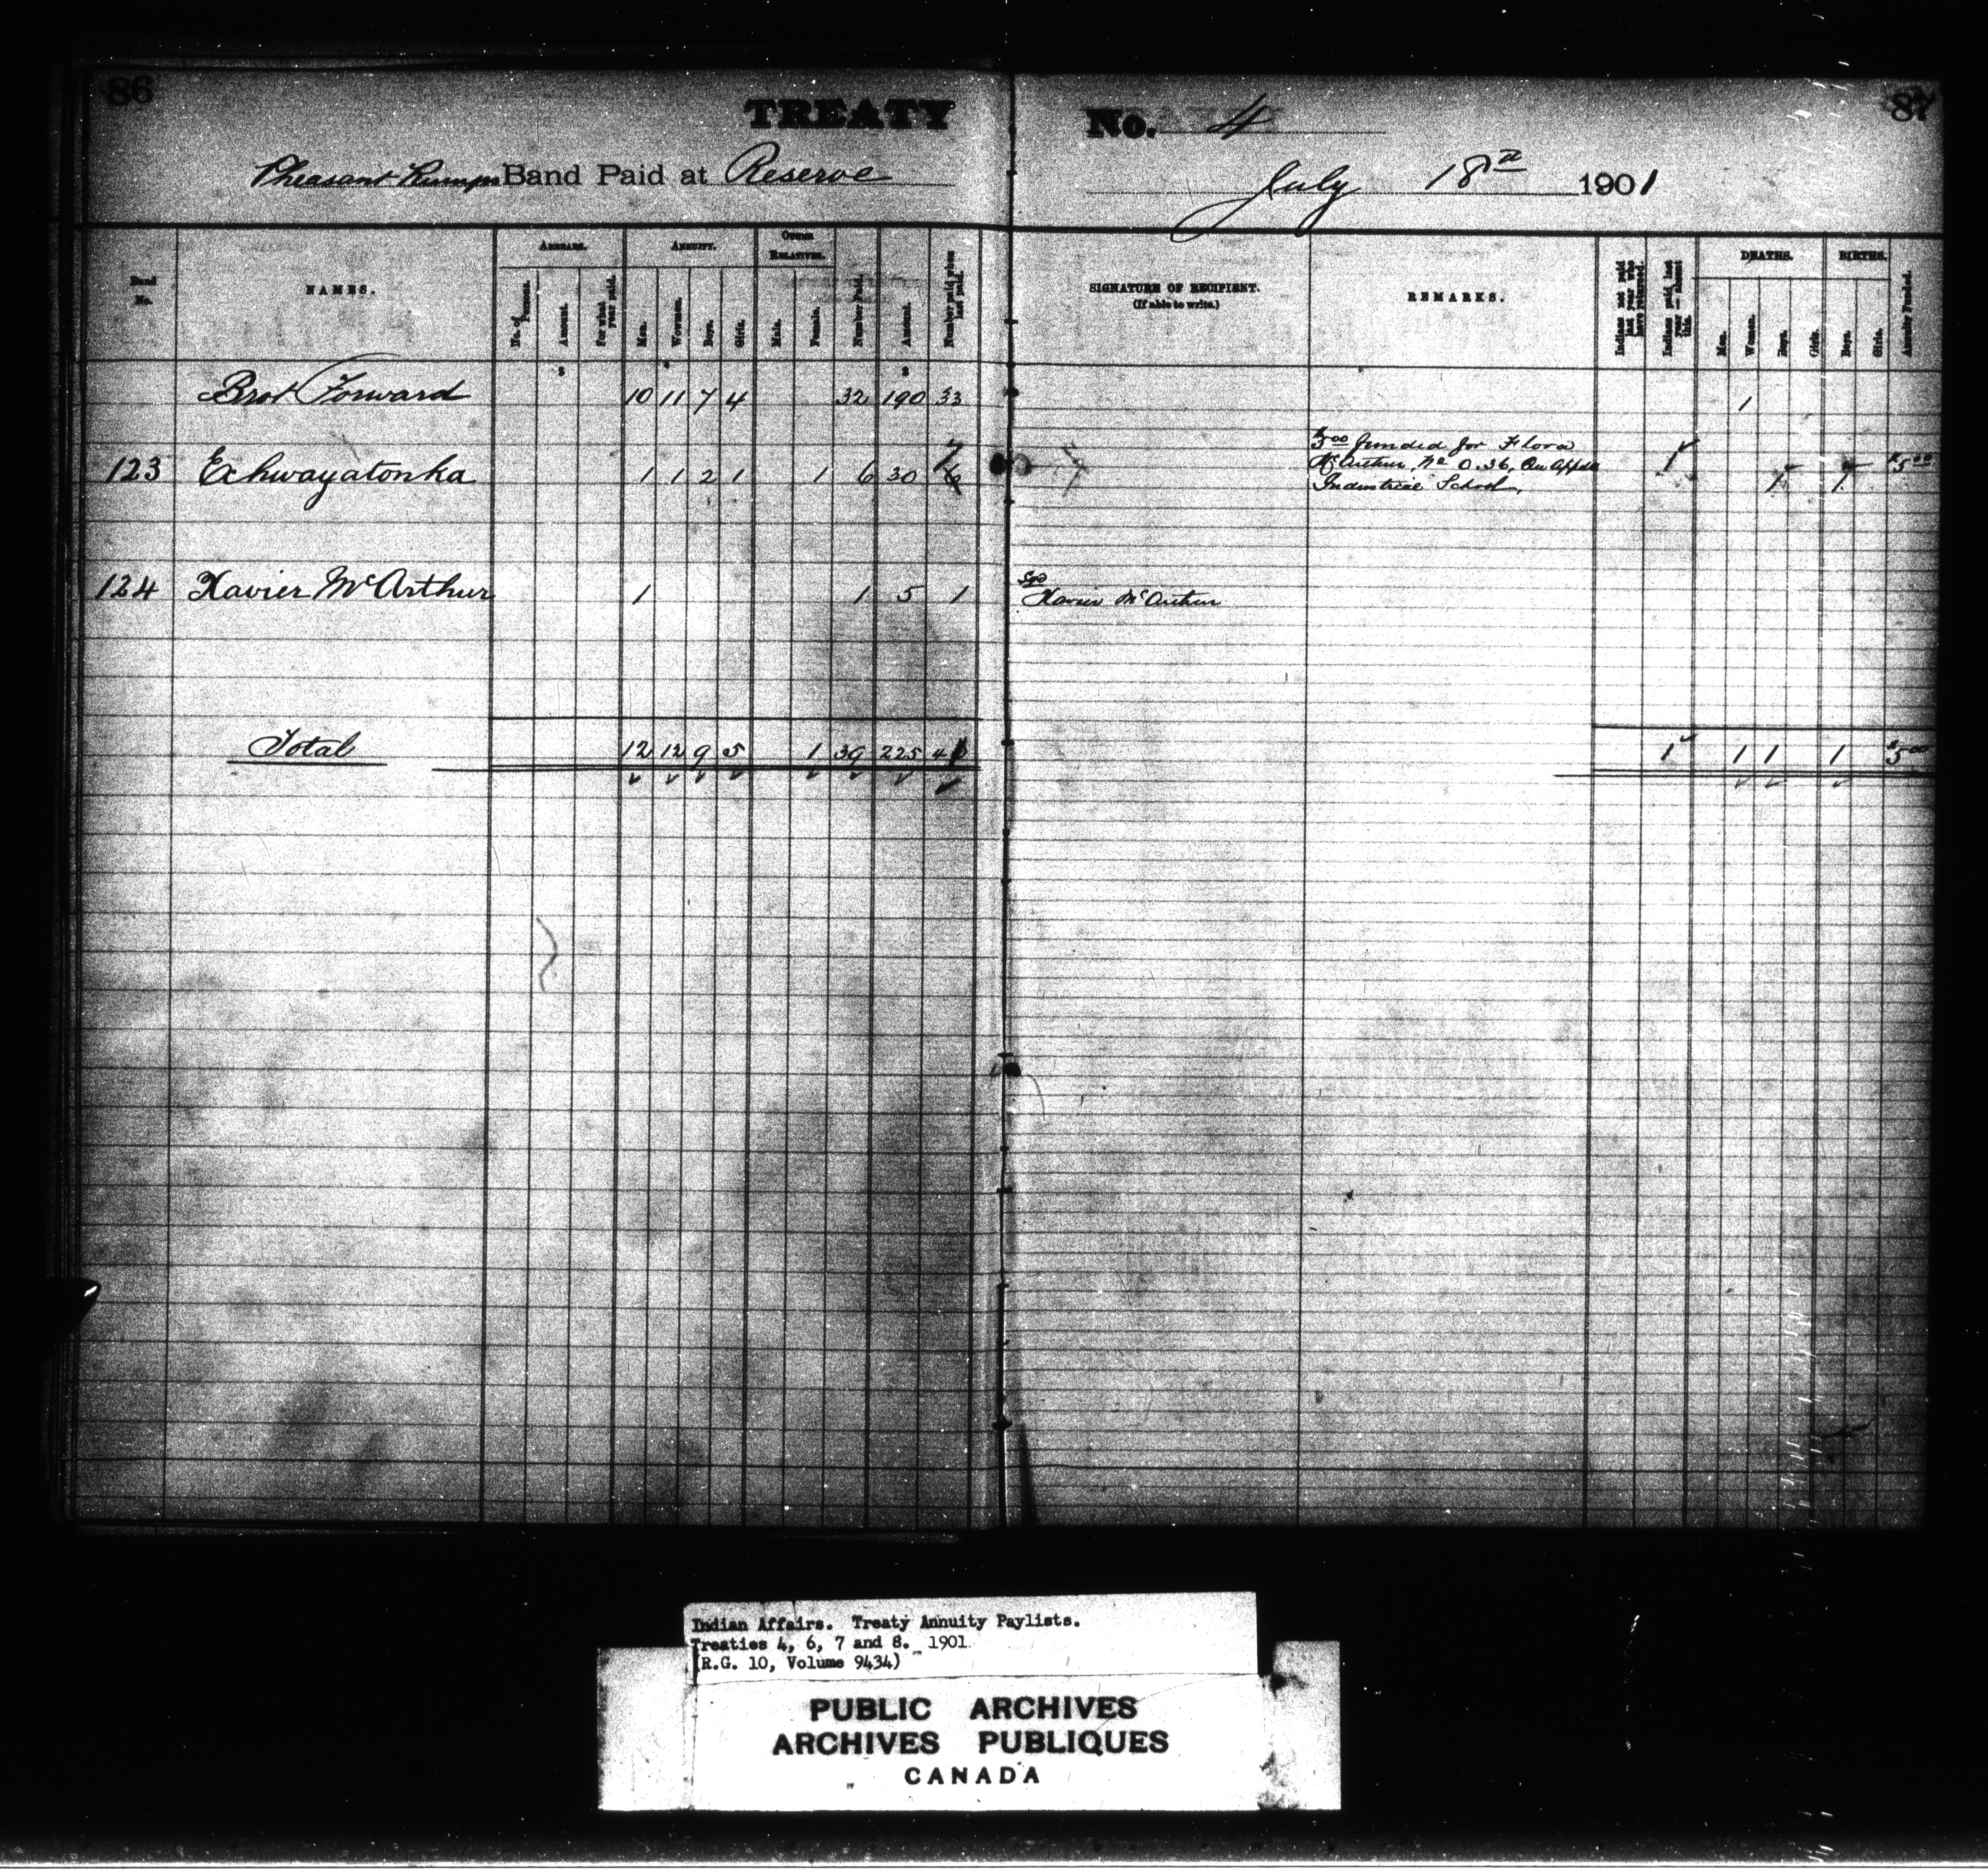 86
TREATY No. 4
87
Pheasant Rumps Band Paid at Reserve July 18th 1901
Band No.
NAMES.
ARREARS.
No. of Persons.
Amount.
For what year paid.
ANNUITY.
Men.
Women.
Boys.
Girls.
OTHER RELATIVES.
Male.
Female.
Number Paid.
Amount.
Number paid when last paid.
SIGNATURE OF RECIPIENT.
(If able to write.)
REMARKS.
Indians not paid last year who have returned.
Indians paid last year — absent this.
DEATHS.
Men.
Women.
Boys.
Girls.
BIRTHS.
Boys.
Girls.
Annuity Funded.
$ $
Brot Forward 10 11 7 4 32 190 33 1
123 Echwayatonka 1 1 2 1 1 6 30 6 7 1 1 1 $5 00
$5 00 funded for Flora
McArthur, No 0.36, Qu'Appelle
Industrial School.
124 Xavier McArthur 1 1 5 1
Sgd
Xavier McArthur
Total 12 12 9 5 1 39 225 41 1 1 1 1 $5 00
Indian Affairs. Treaty Annuity Paylists.
Treaties 4, 6, 7 and 8. 1901
(R.G. 10, Volume 9434)
PUBLIC ARCHIVES
ARCHIVES PUBLIQUES
CANADA